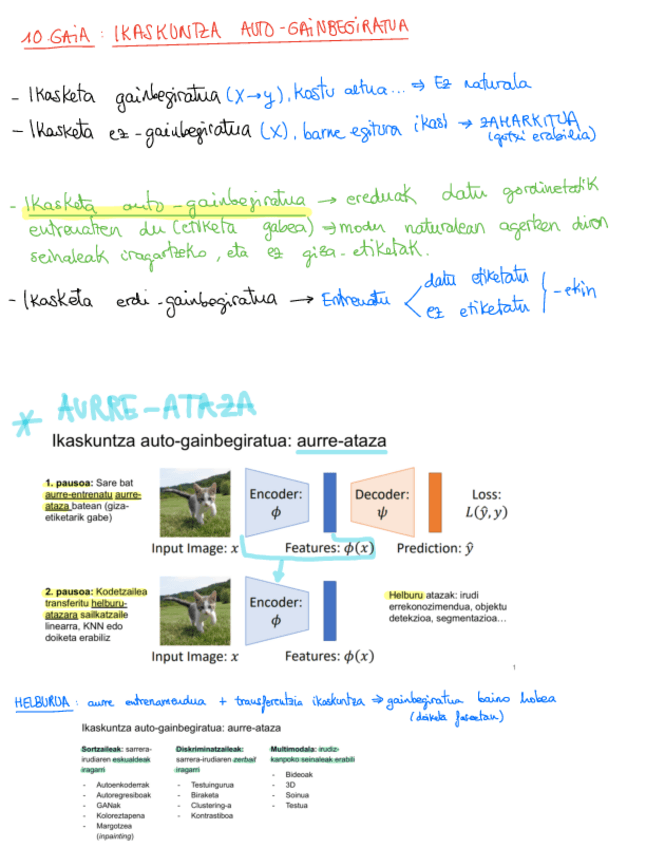 10. GAIA : IKASKUNTZA AUTO-GAINBEGIRATUA
- Ikasketa gainbegiratua (X→y), kostu altua... ⇒ Ez naturala
- Ikasketa ez-gainbegiratua (X), barne egitura ikasi → ZAHARKITUA
(gutxi erabilia)
- Ikasketa auto-gainbegiratua → ereduak datu gordinetatik
entrenatzen du (etiketa gabea) ⇒ modu naturalean agertzen diren
seinaleak iragartzeko, eta ez giza-etiketak.
- Ikasketa erdi-gainbegiratua → Entrenatu datu etiketatu
ez etiketatu -ekin
* AURRE-ATAZA
Ikaskuntza auto-gainbegiratua: aurre-ataza
1. pausoa: Sare bat
aurre-entrenatu aurre-
ataza batean (giza-
etiketarik gabe)
Encoder:
ϕ
Decoder:
ψ
Loss:
L(ŷ, y)
Input Image: x Features: ϕ(x) Prediction: ŷ
2. pausoa: Kodetzailea
transferitu helburu-
atazara sailkatzaile
linearra, KNN edo
doiketa erabiliz
Encoder:
ϕ
Helburu atazak: irudi
errekonozimendua, objektu
detekzioa, segmentazioa...
Input Image: x Features: ϕ(x)
1
HELBURUA : aurre entrenamendua + transferentzia ikaskuntza ⇒ gainbegiratua baino hobea
(doiketa fasean)
Ikaskuntza auto-gainbegiratua: aurre-ataza
Sortzaileak: sarrera-
irudiaren eskualdeak
iragarri
- Autoenkoderrak
- Autoregresiboak
- GANak
- Koloreztapena
- Margotzea
(inpainting)
Diskriminatzaileak:
sarrera-irudiaren zerbait
iragarri
- Testuingurua
- Biraketa
- Clustering-a
- Kontrastiboa
Multimodala: irudiz-
kanpoko seinaleak erabili
- Bideoak
- 3D
- Soinua
- Testua